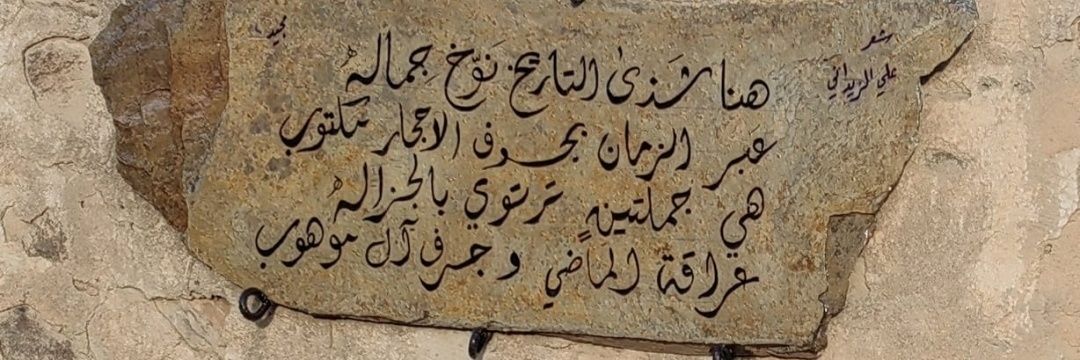 شعر
علي الريداني
هنا شذى التاريخ نوّخ جماله
عبر الزمان بحروف الاحجار مكتوب
هي جملتينٍ ترتوي بالجزاله
عراقة الماضي وجرف آل موهوب